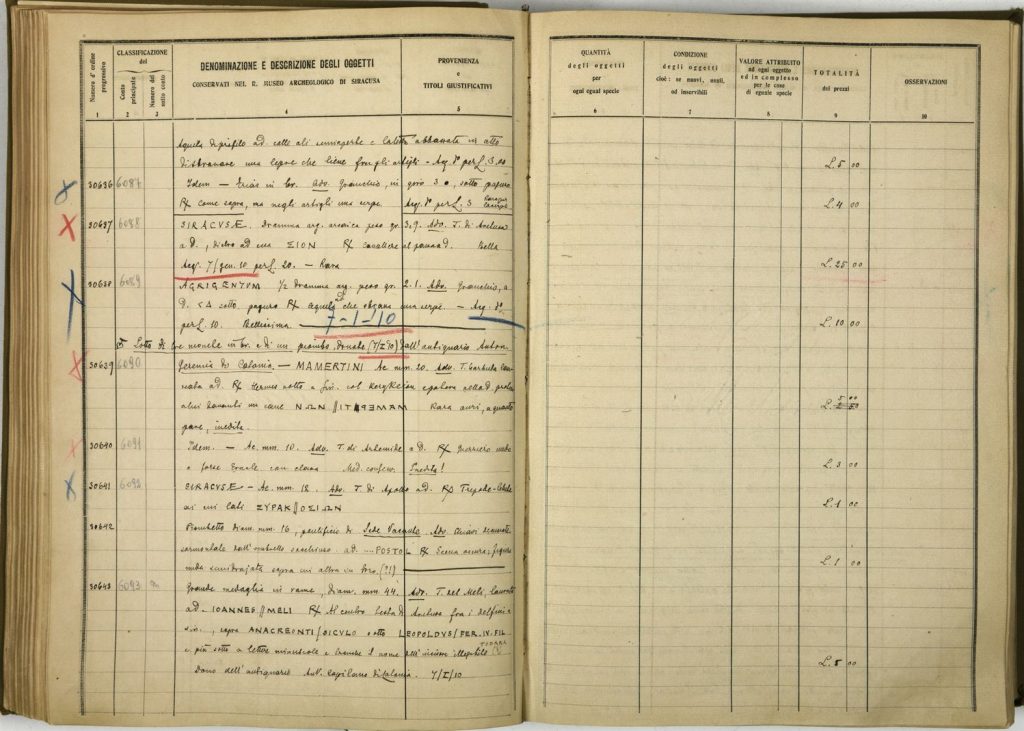 Numero d'ordine progressivo
CLASSIFICAZIONE del
Conto principale
Numero del sotto conto
DENOMINAZIONE E DESCRIZIONE DEGLI OGGETTI
CONSERVATI NEL R. MUSEO ARCHEOLOGICO DI SIRACUSA
PROVENIENZA
e
TITOLI GIUSTIFICATIVI
1 2 3 4 5
Aquila di profilo ad. colle ali semiaperte e abbassate in atto
di sbranare una lepre che tiene fra gli artigli – Acq. per L. 3.00
30636 6087 Idem – Trias in br. Adv. Granchio, in giro 3 •, sotto paguro
℞ come sopra, ma negli artigli una serpe. Acq. per L. 3
30637 6088 SIRACVSÆ. Dramma arg. arcaica peso gr. 3.9. Adv. T. di Aretusa
a d., dietro ad essa ΣΙΟΝ ℞ cavaliere al passo d. Bella
Acq. 7/gen. 10 per L. 20. – Rara
30638 6089 AGRIGENTVM ½ dramma arg. peso gr. 2.1. Adv. Granchio, a
D. <Δ sotto paguro ℞ aquila ad. che sbrana una serpe. – Acq.
per L. 10. Bellissima. 7-1-10
Lotto di tre monete in br. e di un piombo donate (7/I°10) dall'antiquario Anton.
30639 6090 di Catania. – MAMERTINI Ae mm. 20. Adv. T. barbuta
ad. ℞ Hermes sotto a sin. col e
davanti un cane ΝΩΝ // ΜΑΜΕΡΤΙ Rara assai, a quanto
pare, inedita.
30640 6091 Idem. – Ae. mm. 10. Adv. T. di Artemide a D. ℞ Guerriero nudo
o forse Ercole con clava Med. conserv. Inedita!
30641 6092 SIRACVSÆ – Ae mm. 18. Adv. T. di Apollo ad. ℞ Tripode-Lebete
ai cui lati ΣΥΡΑΚ // ΟΣΙΩΝ
30642 Piombetto diam. mm. 16, pontificio di Sede Vacante. Adv. Chiavi
sormontate dall'ombrello ad. ....POSTOL ℞ Scena oscura; figura
nuda sdraiata sopra un altra in (?!)
30643 6093 Grande medaglia in rame, diam. mm. 44. Adv. T. del Meli, laureata
ad. IOANNES // MELI ℞ Al centro testa di Aretusa fra i delfini a
sin., sopra ANACREONTI / SICVLO sotto LEOPOLDVS / FER. IV. FIL
e più sotto a lettere minuscole il nome dell'incisore
Dono dell'antiquario Ant. di Catania. 7/I/10
QUANTITÀ
degli oggetti
per
ogni egual specie
CONDIZIONE
degli oggetti
cioè: se nuovi, usati,
od inservibili
VALORE ATTRIBUITO
ad ogni oggetto
ed in complesso
per le cose
di eguale specie
TOTALITÀ
dei prezzi
OSSERVAZIONI
6 7 8 9 10
L. 5 00
L. 4 00
L. 25 00
L. 10 00
5 00
L. 2 50
L. 3 00
L. 1 00
L. 1 00
L. 5 00